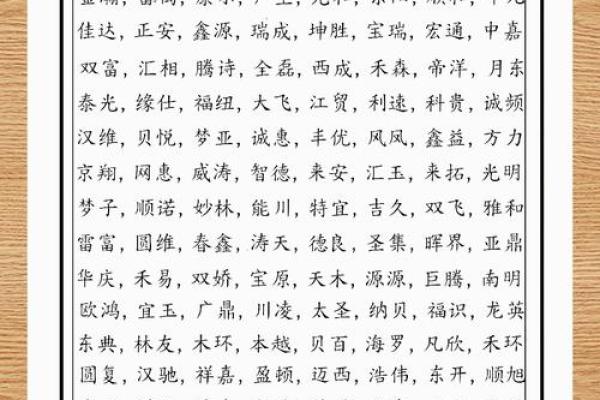 佳达，正安，鑫源，瑞成，坤胜，宝瑞，宏通，中嘉
双富，汇相，腾诗，全磊，西成，禾森，帝洋，月东
泰光，缘仕，福纽，大飞，江贸，利速，科贵，诚频
汉维，贝悦，梦亚，诚惠，丰优，风凤，鑫益，方力
京翔，网惠，威涛，智德，来安，汇玉，来拓，光明
梦子，顺诺，妙林，能川，特宜，吉久，双飞，雅和
雷富，圆维，春鑫，涛天，德良，圣集，晖界，亚鼎
华庆，禾易，双娇，宝原，天木，源源，巨腾，南明
欧鸿，宜玉，广鼎，川凌，太圣，纳贝，福识，龙英
东典，林友，木环，本越，贝百，海罗，凡欣，禾环
圆复，汉驰，祥嘉，盈顿，迈西，浩伟，东开，顺旭